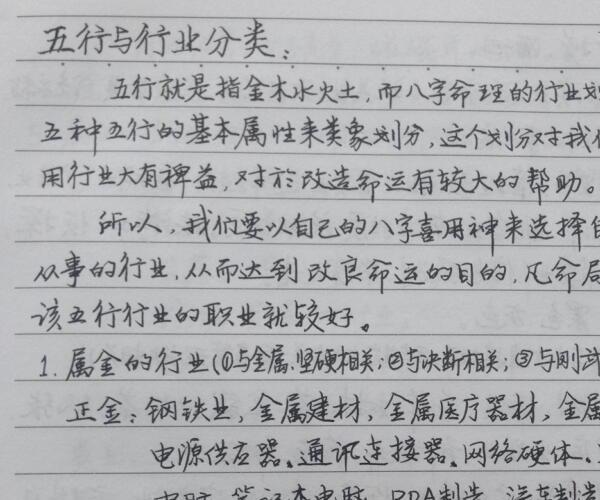 五行与行业分类：
五行就是指金木水火土，而八字命理的行业划
五种五行的基本属性来类象划分，这个划分对我们
用行业大有裨益，对於改造命运有较大的帮助。
所以，我们要以自己的八字喜用神来选择
从事的行业，从而达到改良命运的目的，凡命局
该五行行业的职业就较好。
1. 属金的行业（①与金属、坚硬相关；②与决断相关；③与刚武
正金：钢铁业，金属建材，金属医疗器材，金属
电源供应器、通讯连接器、网络硬体、
电脑、笔记本电脑、PDA制造、汽车制造